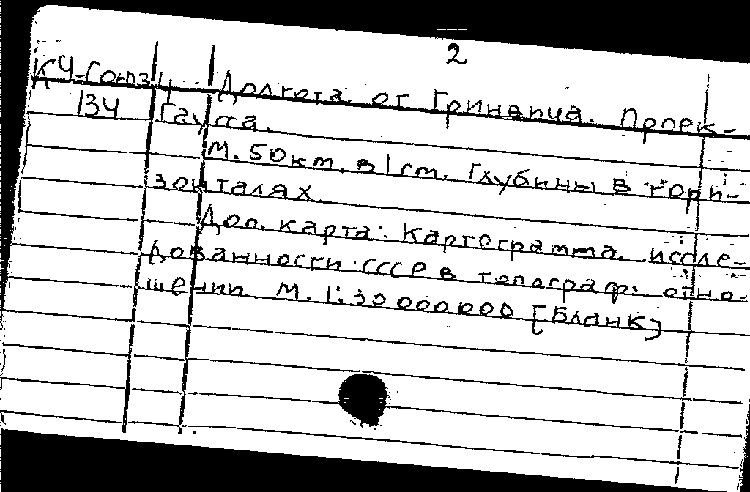 2
К4-Союз Долгота от Гринвича. Проек-
134 Гаусса.
М. 50км. в 1 см. Глубины в гори-
зонталях
Доп. карта: Картограмма иссле-
дованности СССР в топограф. отно-
шении М. 1:30 000000 [Бланк]